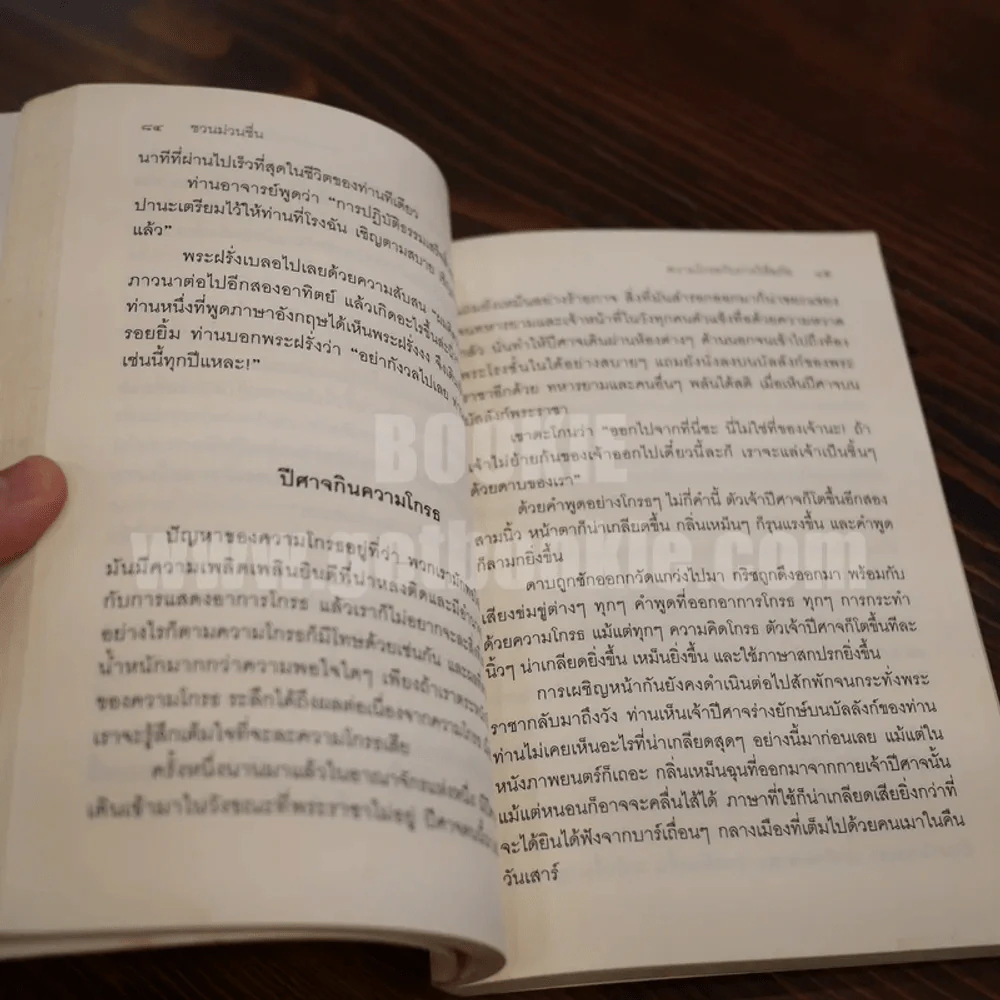 ๘๔ ชวนม่วนชื่น
นาทีที่ผ่านไปเร็วที่สุดในชีวิตของท่านทีเดียว
ท่านอาจารย์พูดว่า “การปฏิบัติธรรมเสร็จ
ปานะเตรียมไว้ให้ท่านที่โรงฉัน เชิญตามสบาย
แล้ว”
พระฝรั่งเบลอไปเลยด้วยความสับสน
ภาวนาต่อไปอีกสองอาทิตย์ แล้วเกิดอะไรขึ้น
ท่านหนึ่งที่พูดภาษาอังกฤษได้เห็นพระฝรั่งงง จึง
รอยยิ้ม ท่านบอกพระฝรั่งว่า “อย่ากังวลไปเลย
เช่นนี้ทุกปีแหละ!”
ปีศาจกินความโกรธ
ปัญหาของความโกรธอยู่ที่ว่า พวกเรามัก
มันมีความเพลิดเพลินยินดีที่น่าหลงติดและมี
กับการแสดงอาการโกรธ แล้วเราก็ไม่อยากจะละ
อย่างไรก็ตามความโกรธก็มีโทษด้วยเช่นกัน และ
น้ำหนักมากกว่าความพอใจใดๆ เพียงถ้าเรา
ของความโกรธ ระลึกได้ถึงผลต่อเนื่องจากความโกรธ
เราจะรู้สึกเต็มใจที่จะละความโกรธเสีย
ครั้งหนึ่งนานมาแล้วในอาณาจักรแห่งหนึ่ง
เดินเข้ามาในวังขณะที่พระราชาไม่อยู่ ปีศาจ
แถมยังเหม็นอย่างร้ายกาจ สิ่งที่มันสำรอกออกมาก็น่าขยะแขยง
ทหารยามและเจ้าหน้าที่ในวังทุกคนตัวแข็งทื่อด้วยความหวาด
กลัว นั่นทำให้ปีศาจเดินผ่านห้องต่างๆ ด้านนอกจนเข้าไปถึงท้อง
พระโรงชั้นในได้อย่างสบายๆ แถมยังนั่งลงบนบัลลังก์ของพระ
ราชาอีกด้วย ทหารยามและคนอื่นๆ พลันได้สติ เมื่อเห็นปีศาจบน
บัลลังก์พระราชา
เขาตะโกนว่า “ออกไปจากที่นี่ซะ นี่ไม่ใช่ที่ของเจ้านะ! ถ้า
เจ้าไม่ย้ายก้นของเจ้าออกไปเดี๋ยวนี้ละก็ เราจะแล่เจ้าเป็นชิ้นๆ
ด้วยดาบของเรา”
ด้วยคำพูดอย่างโกรธๆ ไม่กี่คำนี้ ตัวเจ้าปีศาจก็โตขึ้นอีกสอง
สามนิ้ว หน้าตาก็น่าเกลียดขึ้น กลิ่นเหม็นๆ ก็รุนแรงขึ้น และคำพูด
ก็ลามกยิ่งขึ้น
ดาบถูกชักออกกวัดแกว่งไปมา กริชถูกดึงออกมา พร้อมกับ
เสียงข่มขู่ต่างๆ ทุกๆ คำพูดที่ออกอาการโกรธ ทุกๆ การกระทำ
ด้วยความโกรธ แม้แต่ทุกๆ ความคิดโกรธ ตัวเจ้าปีศาจก็โตขึ้นทีละ
นิ้วๆ น่าเกลียดยิ่งขึ้น เหม็นยิ่งขึ้น และใช้ภาษาสกปรกยิ่งขึ้น
การเผชิญหน้ากันยังคงดำเนินต่อไปสักพักจนกระทั่งพระ
ราชากลับมาถึงวัง ท่านเห็นเจ้าปีศาจร่างยักษ์บนบัลลังก์ของท่าน
ท่านไม่เคยเห็นอะไรที่น่าเกลียดสุดๆ อย่างนี้มาก่อนเลย แม้แต่ใน
หนังภาพยนตร์ก็เถอะ กลิ่นเหม็นฉุนที่ออกมาจากกายเจ้าปีศาจนั้น
แม้แต่หนอนก็อาจจะคลื่นไส้ได้ ภาษาที่ใช้ก็น่าเกลียดเสียยิ่งกว่าที่
จะได้ยินได้ฟังจากบาร์เถื่อนๆ กลางเมืองที่เต็มไปด้วยคนเมาในคืน
วันเสาร์
BOOKIE
www.gotbookie.com